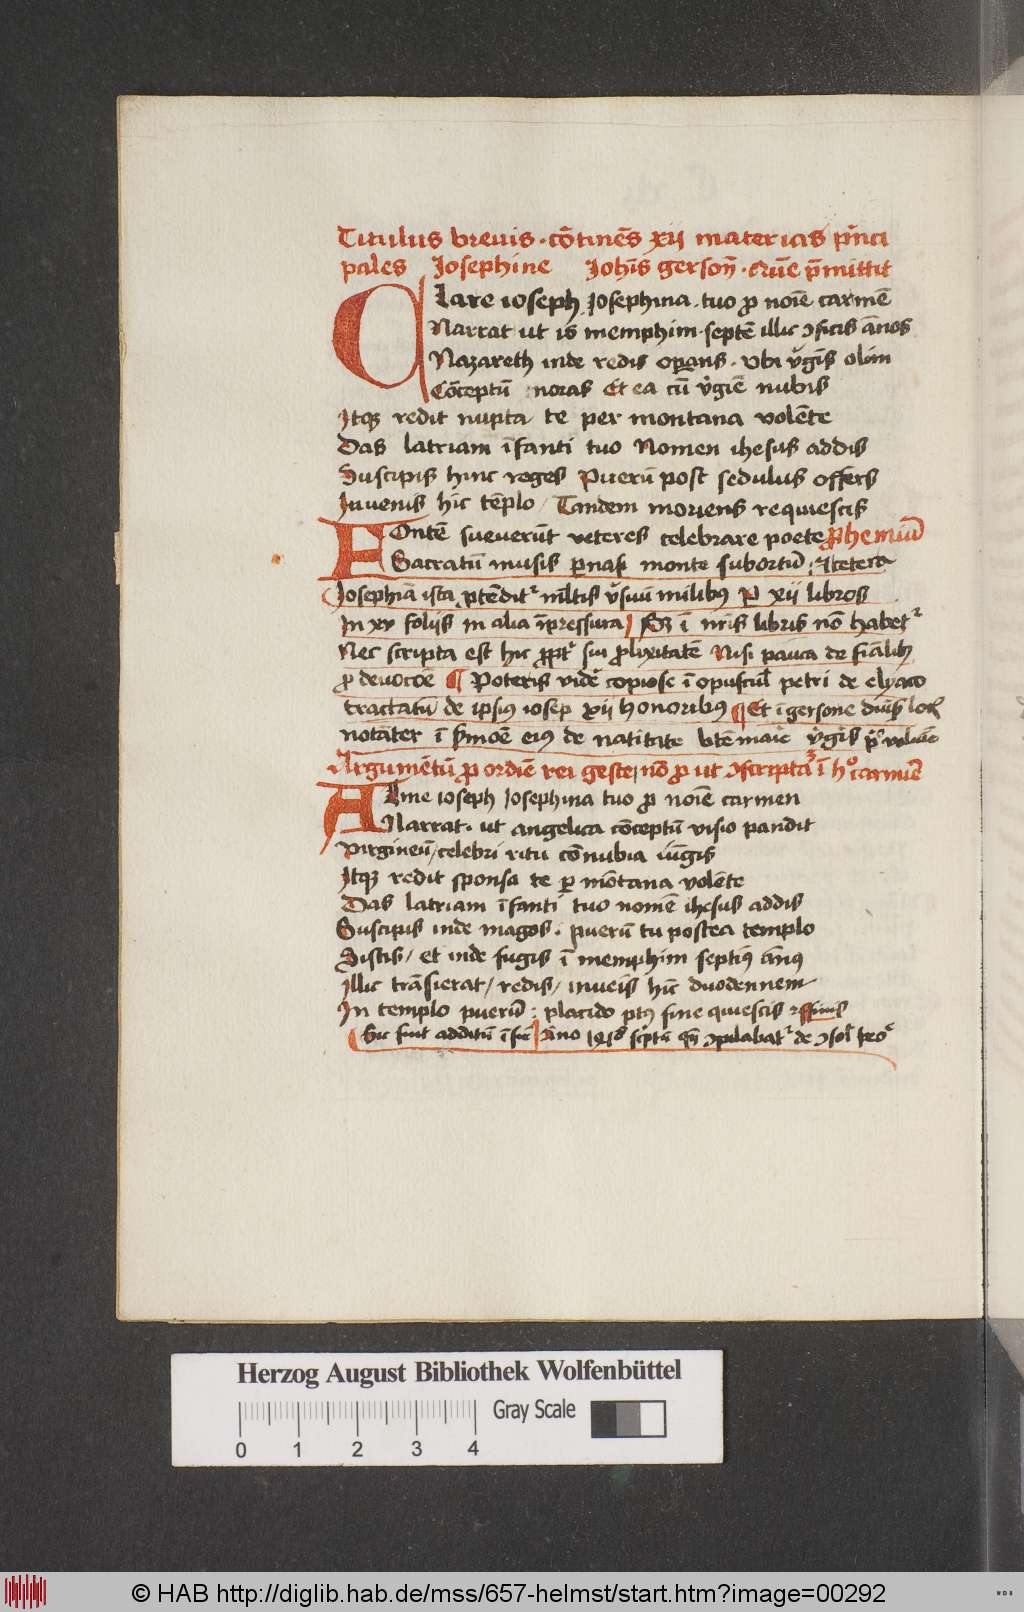 Titulus brevis · cōtinēs xii materias p̄nci
pales Josephine Joh̄is gersoñ · p̄mittit
Clare ioseph Josephina · tuo ꝓ noīe carmē
Narrat ut is memphim · septē illic ꝯficis ānos
Nazareth inde redis operans · vbi v̓gīs olim
Cōceptū noras Et ea cū v̓gīe nubis
Itqꝫ redit nupta te per montana volēte
Das latriam īfanti tuo Nomen ihesus addis
Suscipis hinc reges Puerū post sedulus offers
Iuvenis hic tēplo / Tandem moriens requiescis
Fontē sueverūt veteres celebrare poete ꝓhemiū
Sacratū musis ꝑnasi monte subortū · et cetera
Josephīa ista ꝓtēdit᷑ ml̄tis v̓suū milibus ꝑ xii libros
In xv foliis in alia īpressura Sꝫ ī nr̄is libris nō habet᷑
Nec scripta est hic ꝓpt᷑ sui ꝓlixitatē Nisi pauca de fīalibꝫ
ꝓ devocōe ¶ Poteris vidē copiose ī opuscul̄ petri de elyaco
tractatū de ipsius iosep xii honoribus ¶ Et ī gersone dīu̓s loc̄
notāter ī s̓mōe eius de natitate bt̄e maīe v̓gīs
Argumētū ꝓ ordīe rei geste / nō ꝓ ut ꝯscripta ī hᵒ carmīe
Alme ioseph Josephina tuo ꝓ noīe carmen
Narrat · ut angelica cōceptū visio pandit
Virgineū / celebri ritu cōnubia iūgis
Itqꝫ redit sponsa te ꝑ mōtana volēte
Das latriam īfanti tuo nomē ihesus addis
Suscipis inde magos · puerū tu postea templo
Sistis / et inde fugis ī memphim septiꝰ ānꝰ
Illic trāsierat / redis / inveīs hūc duodennem
In templo puerū : placido ptꝰ fine quiescis
Hic fuit additū ī fīe Anno scriptū qn̄ ꝯpilabat᷑ de ꝯsol̄
Herzog August Bibliothek Wolfenbüttel
Gray Scale
0 1 2 3 4
© HAB http://diglib.hab.de/mss/657-helmst/start.htm?image=00292